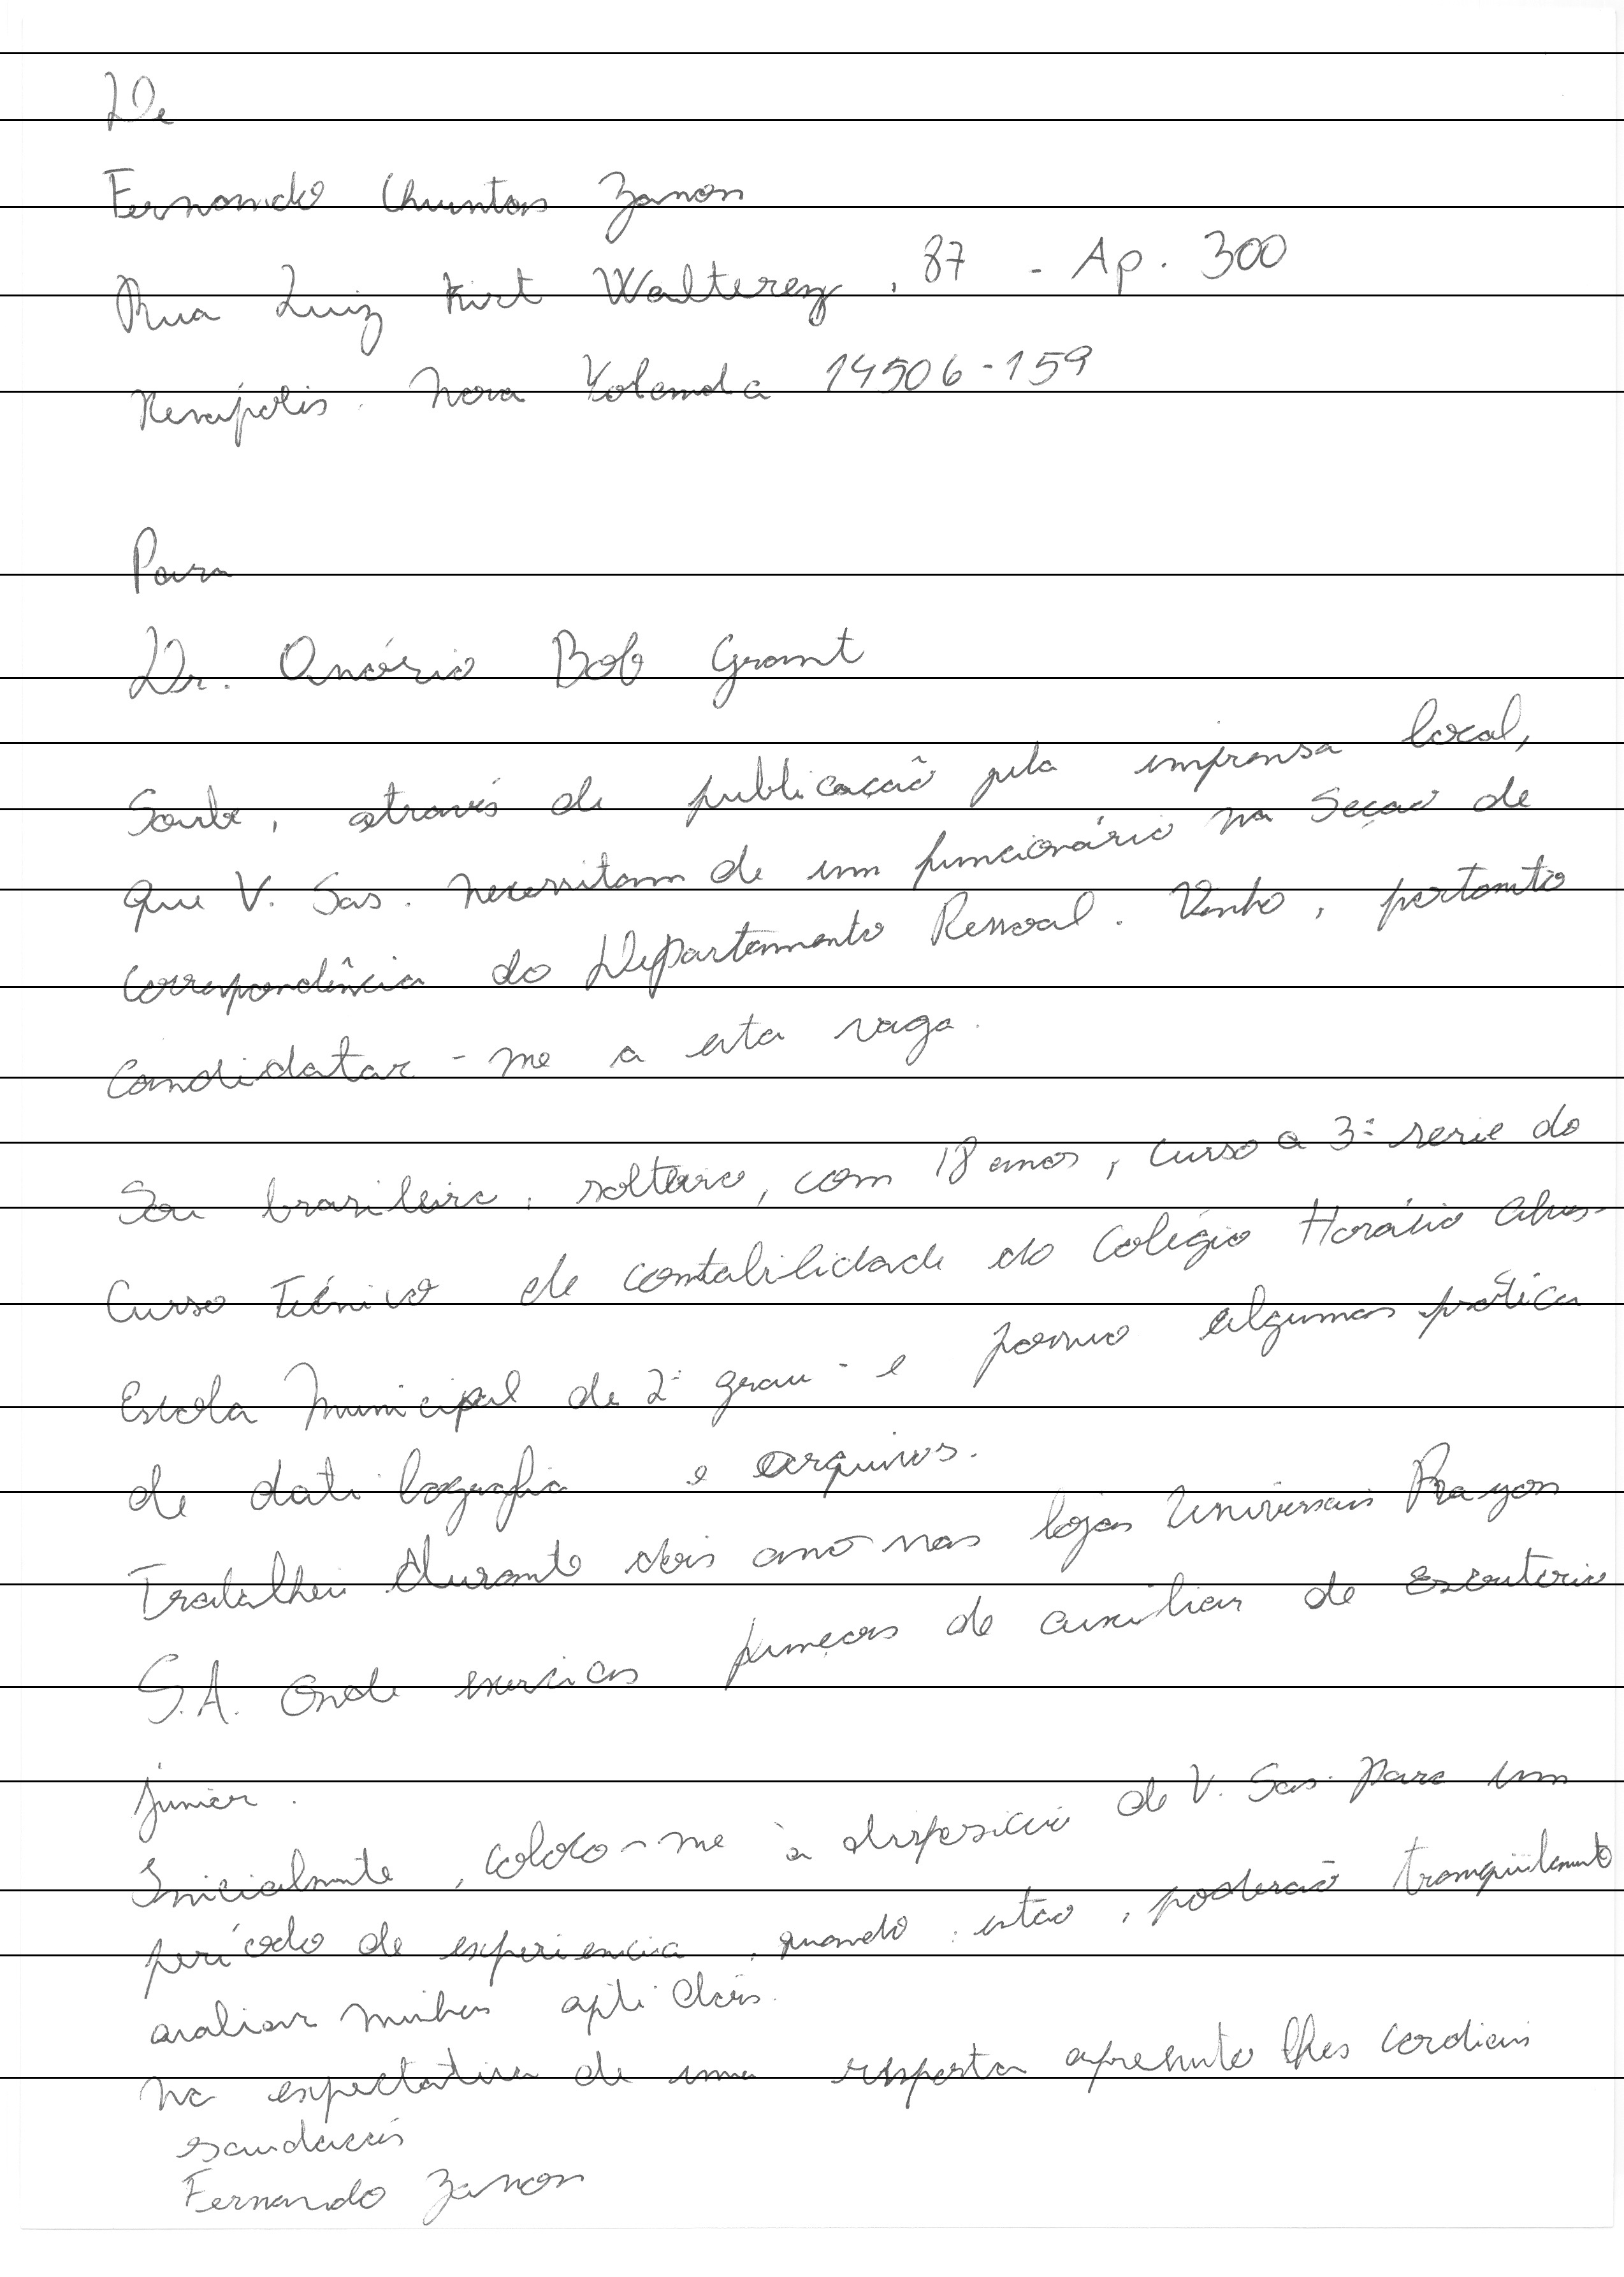 De
Fernando Chuntas Zanon
Rua Luiz Kirt Walterez, 87 - Ap. 300
Nova Yolanda 14506-159
Para
Dr. Onório Bob Grant
Soube, através de publicação pela imprensa local,
que V. Sas. necessitam de um funcionário na Seção de
correspondência do Departamento Pessoal. Venho, portanto
candidatar-me a esta vaga.
Sou brasileiro, solteiro, com 18 anos, curso a 3ª serie do
Curso Técnico de contabilidade do Colégio Horácio Alves-
Escola Municipal de 2º grau - e possuo algumas prática
de datilografia e arquivos.
Trabalhei durante dois ano nas lojas Universais Rayon
S.A. Onde exercicas funçoes de auxiliar de Escritorio
júnior.
Inicialmente, coloco-me à disposição de V. Sas. para um
período de experiencia, quando, então, poderão tranqüilamente
avaliar minhas
na expectativa de uma resposta apresento lhes cordiais
saudações
Fernando Zanon